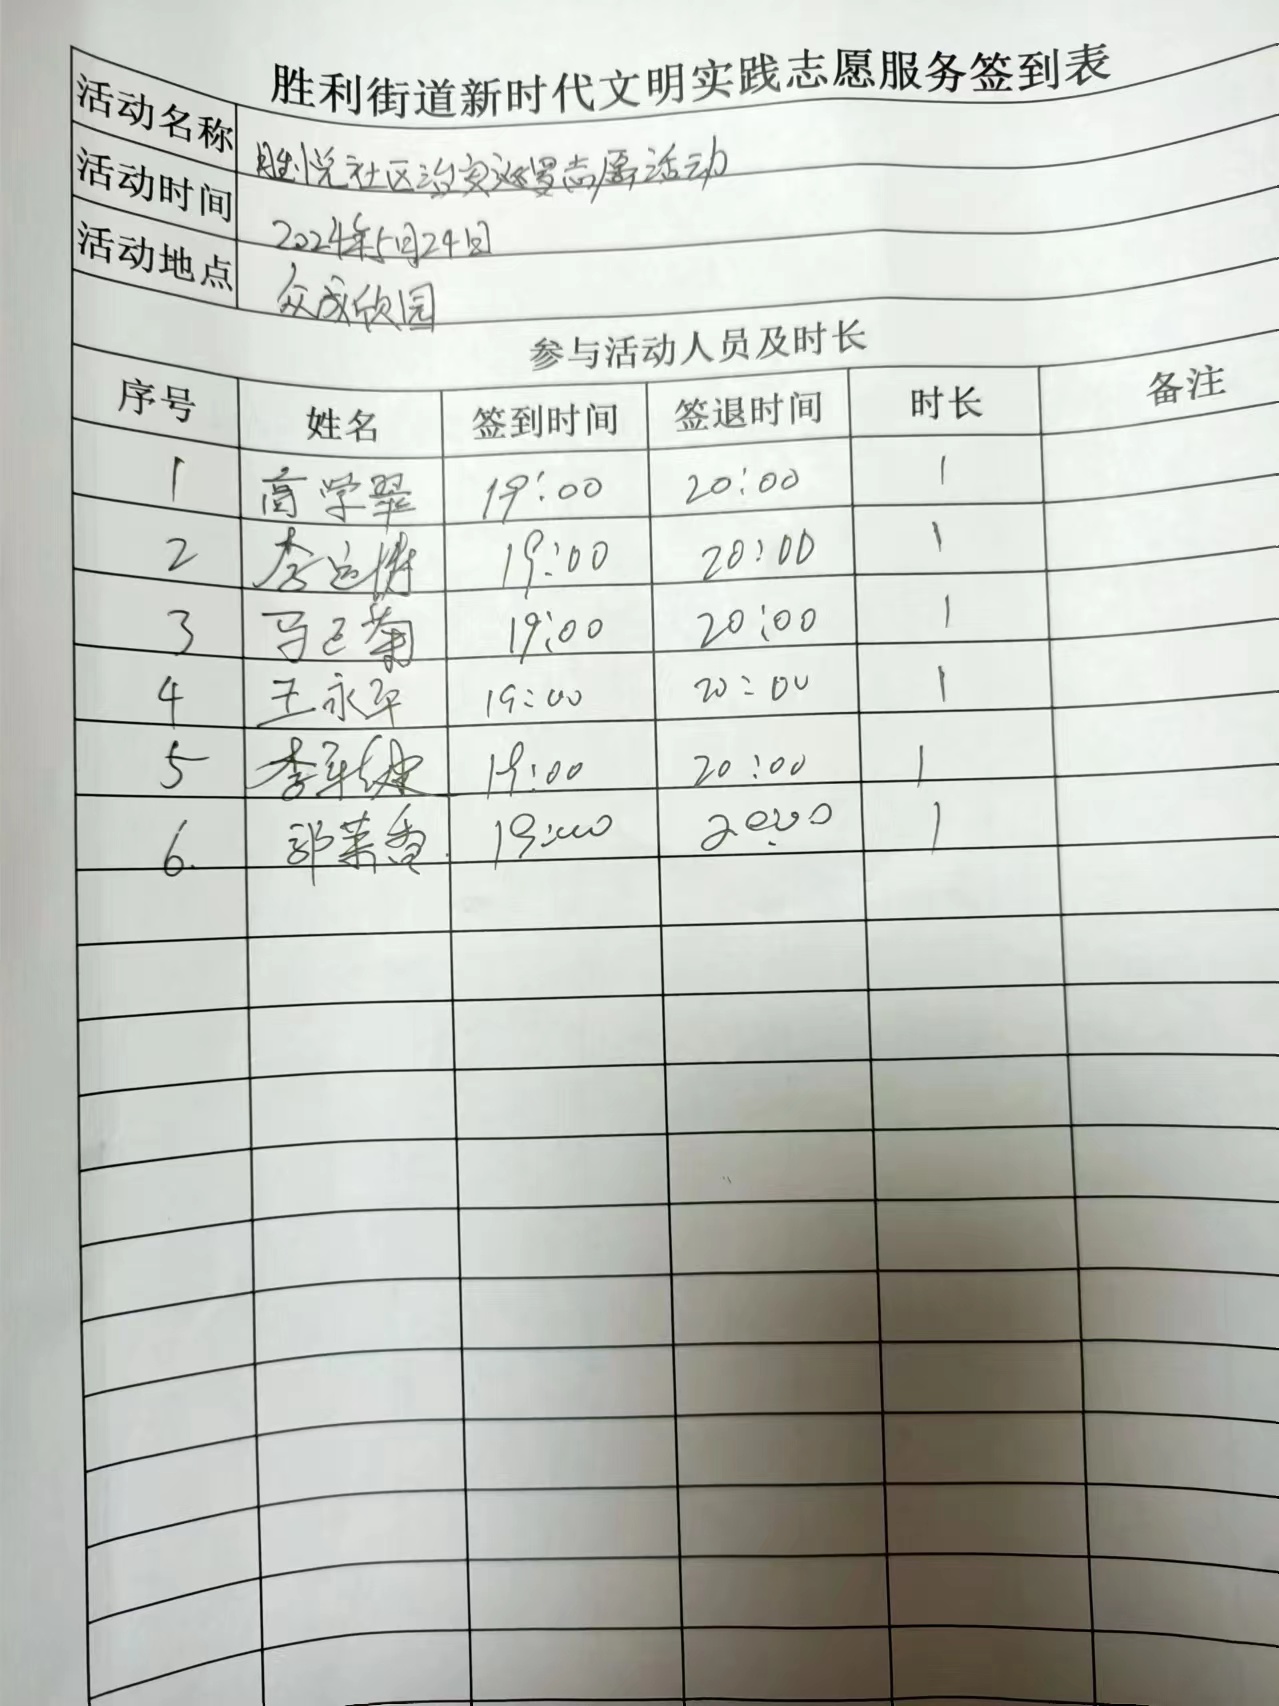 胜利街道新时代文明实践志愿服务签到表
活动名称 胜悦社区治安巡逻志愿活动
活动时间 2024年5月24日
活动地点 众成欣园
参与活动人员及时长
序号 姓名 签到时间 签退时间 时长 备注
1 商学翠 19:00 20:00 1
2 李 19:00 20:00 1
3 马 菊 19:00 20:00 1
4 王永平 19:00 20:00 1
5 李 19:00 20:00 1
6. 郭 香 19:00 20:00 1